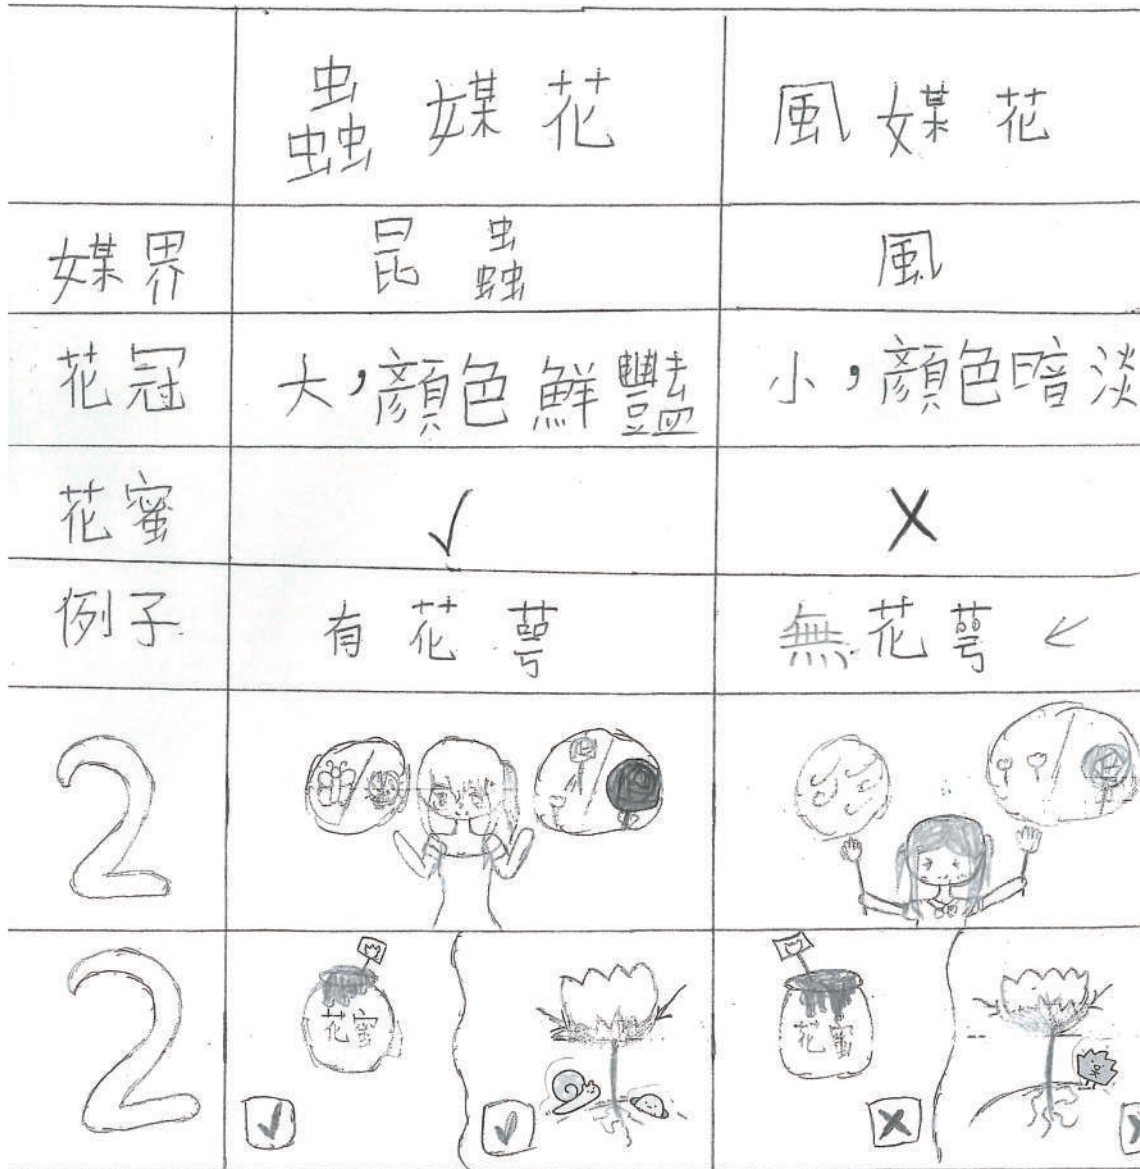 蟲媒花 風媒花
媒界 昆蟲 風
花冠 大，顏色鮮豔 小，顏色暗淡
花蜜 ✓ X
例子 有花萼 無花萼 ←
2
2 花蜜 ✓ ✓ 花蜜 X